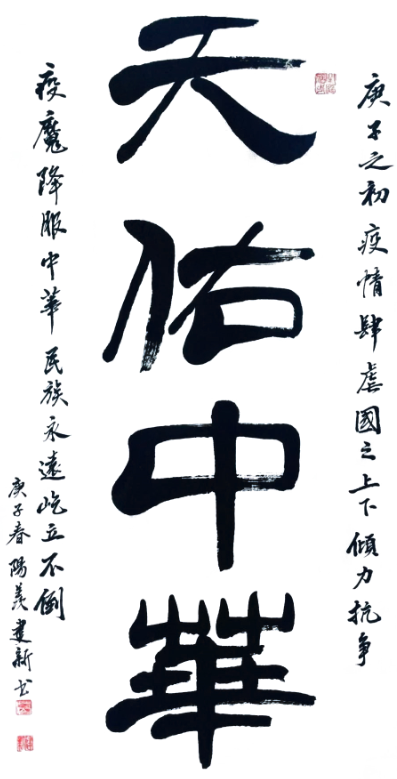 庚子之初疫情肆虐國之上下傾力抗争
天佑中華
疫魔降服中華民族永遠屹立不倒
庚子春陽羡建新书